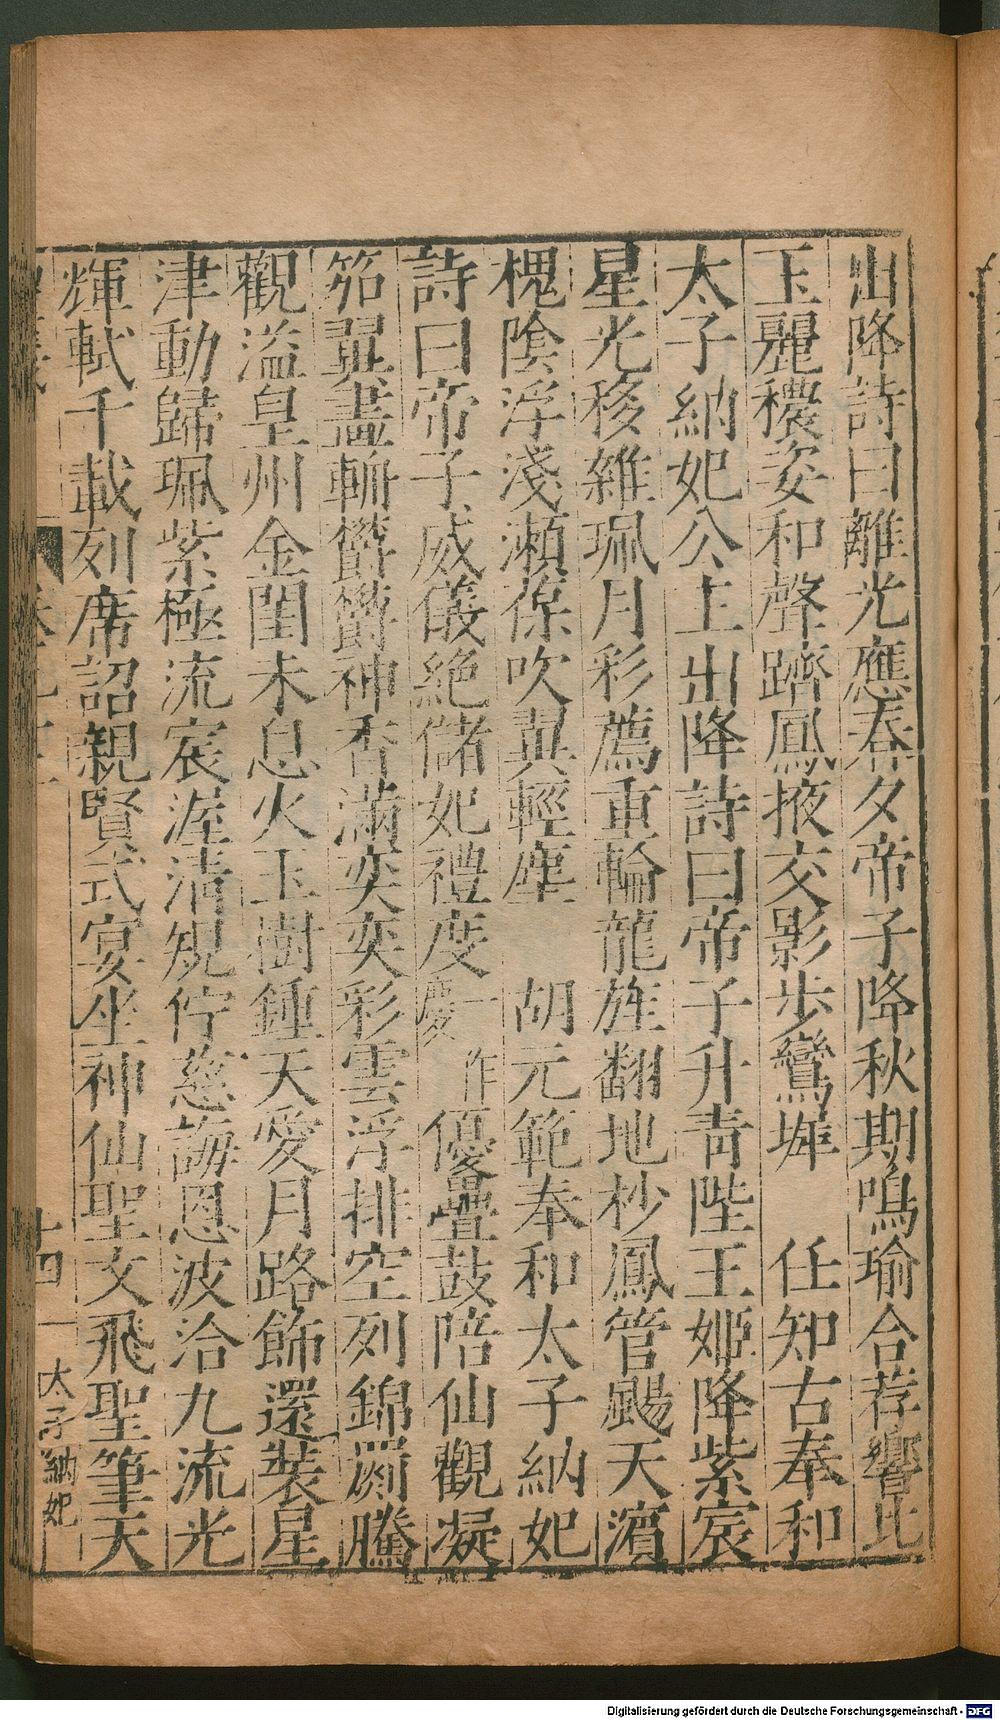 出降詩曰離光應春夕帝子降秋期鳴瑜合荐響比
玉麗穠姿和聲躋鳳掖交影步鸞墀　任知古奉和
太子納妃公主出降詩曰帝子升青陛王姬降紫宸
星光移雜珮月彩薦重輪龍旌翻地杪鳳管颺天濱
槐陰浮淺瀨葆吹翼輕塵　胡元範奉和太子納妃
詩曰帝子威儀絕儲妃禮度優疊鼓陪仙觀凝
一作慶
笳翼畫輈欝欝神香滿奕奕彩雲浮排空列錦罽騰
觀溢皇州金閨未息火玉樹鍾天愛月路飾還裝星
津動歸珮紫極流宸渥清規佇慈誨恩波洽九流光
輝軾千載列席詔親賢式宴坐神仙聖文飛聖筆天
十四
太子納妃
Digitalisierung gefördert durch die Deutsche Forschungsgemeinschaft - DFG